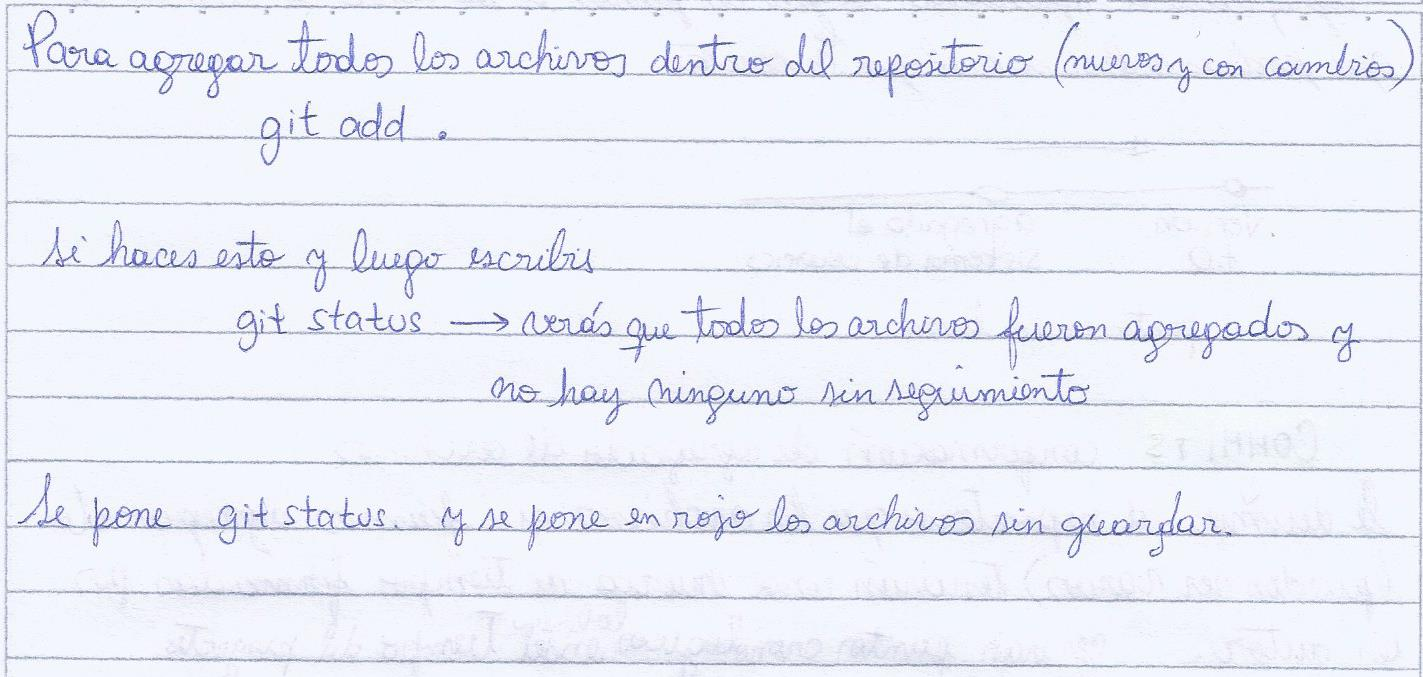 Para agregar todos los archivos dentro del repositorio (nuevos y con cambios)
git add .
Si haces esto y luego escribis
git status → verás que todos los archivos fueron agregados y
no hay ninguno sin seguimiento
Se pone git status. y se pone en rojo los archivos sin guardar.